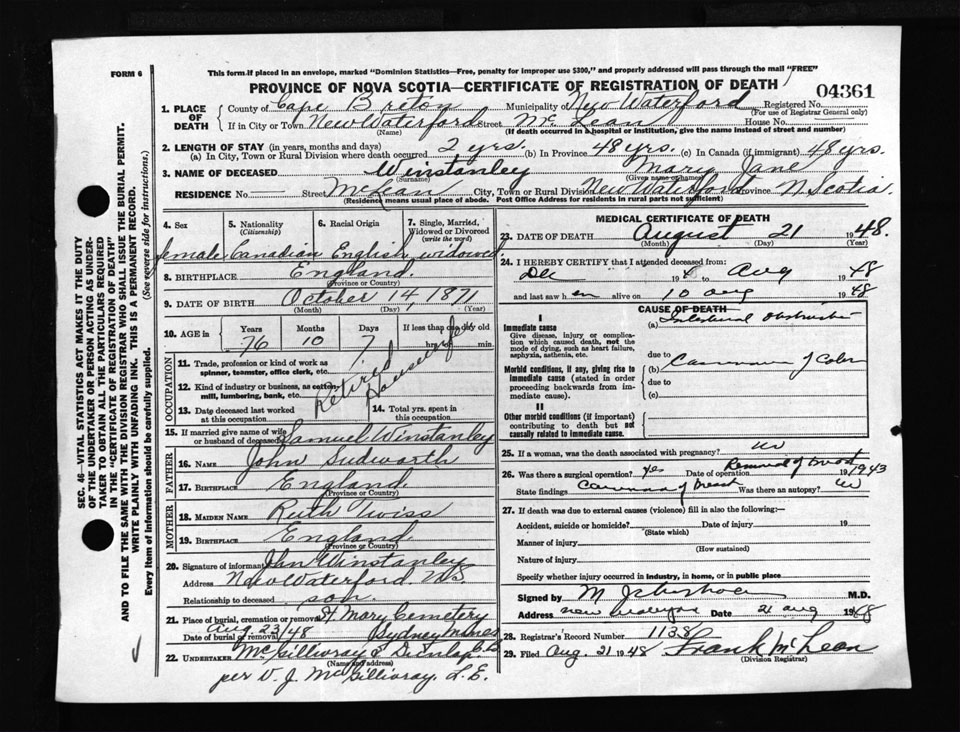 FORM 6
This form if placed in an envelope, marked "Dominion Statistics—Free, penalty for improper use $300," and properly addressed will pass through the mail "FREE"
PROVINCE OF NOVA SCOTIA—CERTIFICATE OF REGISTRATION OF DEATH
04361
1. PLACE OF DEATH
County of Cape Breton Municipality of New Waterford Registered No.
(For use of Registrar General only)
If in City or Town New Waterford Street McLean House No.
(Name) (If death occurred in a hospital or institution, give the name instead of street and number)
2. LENGTH OF STAY (in years, months and days)
(a) In City, Town or Rural Division where death occurred 2 yrs. (b) In Province 48 yrs. (c) In Canada (if immigrant) 48 yrs.
3. NAME OF DECEASED Winstanley Mary Jane
(Surname) (Given name or names)
RESIDENCE No. Street McLean City, Town or Rural Division New Waterford Province N. Scotia
(Residence means usual place of abode. Post Office Address for residents in rural parts not sufficient)
4. Sex 5. Nationality (Citizenship) 6. Racial Origin 7. Single, Married, Widowed or Divorced (write the word)
female Canadian English widowed
8. BIRTHPLACE England
(Province or Country)
9. DATE OF BIRTH October 14, 1871
(Month) (Day) (Year)
10. AGE in Years Months Days If less than one day old
76 10 7 hrs. min.
OCCUPATION
11. Trade, profession or kind of work as spinner, teamster, office clerk, etc.
12. Kind of industry or business, as cotton-mill, lumbering, bank, etc.
Retired Housewife
13. Date deceased last worked at this occupation
14. Total yrs. spent in this occupation
15. If married give name of wife or husband of deceased Samuel Winstanley
FATHER
16. NAME John Sudworth
17. BIRTHPLACE England
(Province or Country)
MOTHER
18. MAIDEN NAME Ruth Twiss
19. BIRTHPLACE England
(Province or Country)
20. Signature of informant John Winstanley
Address New Waterford. N.S.
Relationship to deceased son.
21. Place of burial, cremation or removal St Mary Cemetery
Date of burial or removal Aug 23/48 Sydney Mines
22. UNDERTAKER McGillivray & Dunlap
(Name and address)
per V. J. McGillivray. L.E.
MEDICAL CERTIFICATE OF DEATH
23. DATE OF DEATH August 21 1948.
(Month) (Day) (Year)
24. I HEREBY CERTIFY that I attended deceased from:
Dec to Aug 1948
and last saw her alive on 10 Aug 1948
CAUSE OF DEATH
I
Immediate cause
Give disease, injury or complication which caused death, not the mode of dying, such as heart failure, asphyxia, asthenia, etc.
(a) Intestinal Obstruction
due to
Morbid conditions, if any, giving rise to immediate cause (stated in order proceeding backwards from immediate cause).
(b) Carcinoma of Colon
due to
(c)
II
Other morbid conditions (if important) contributing to death but not causally related to immediate cause.
25. If a woman, was the death associated with pregnancy? no
26. Was there a surgical operation? yes Date of operation Removal of breast 1943
State findings Carcinoma of breast Was there an autopsy? no
27. If death was due to external causes (violence) fill in also the following:—
Accident, suicide or homicide? Date of injury 19
(State which)
Manner of injury
(How sustained)
Nature of injury
Specify whether injury occurred in industry, in home, or in public place
Signed by M. D.
Address New Waterford Date 21 Aug 1948
28. Registrar's Record Number 1138
29. Filed Aug. 21 1948 Frank McLean
(Division Registrar)
SEC. 46—VITAL STATISTICS ACT MAKES IT THE DUTY
OF THE UNDERTAKER OR PERSON ACTING AS UNDER-
TAKER TO OBTAIN ALL THE PARTICULARS REQUIRED
IN THE "CERTIFICATE OF REGISTRATION OF DEATH"
AND TO FILE THE SAME WITH THE DIVISION REGISTRAR WHO SHALL ISSUE THE BURIAL PERMIT.
WRITE PLAINLY WITH UNFADING INK. THIS IS A PERMANENT RECORD.
Every item of information should be carefully supplied. (See reverse side for instructions.)